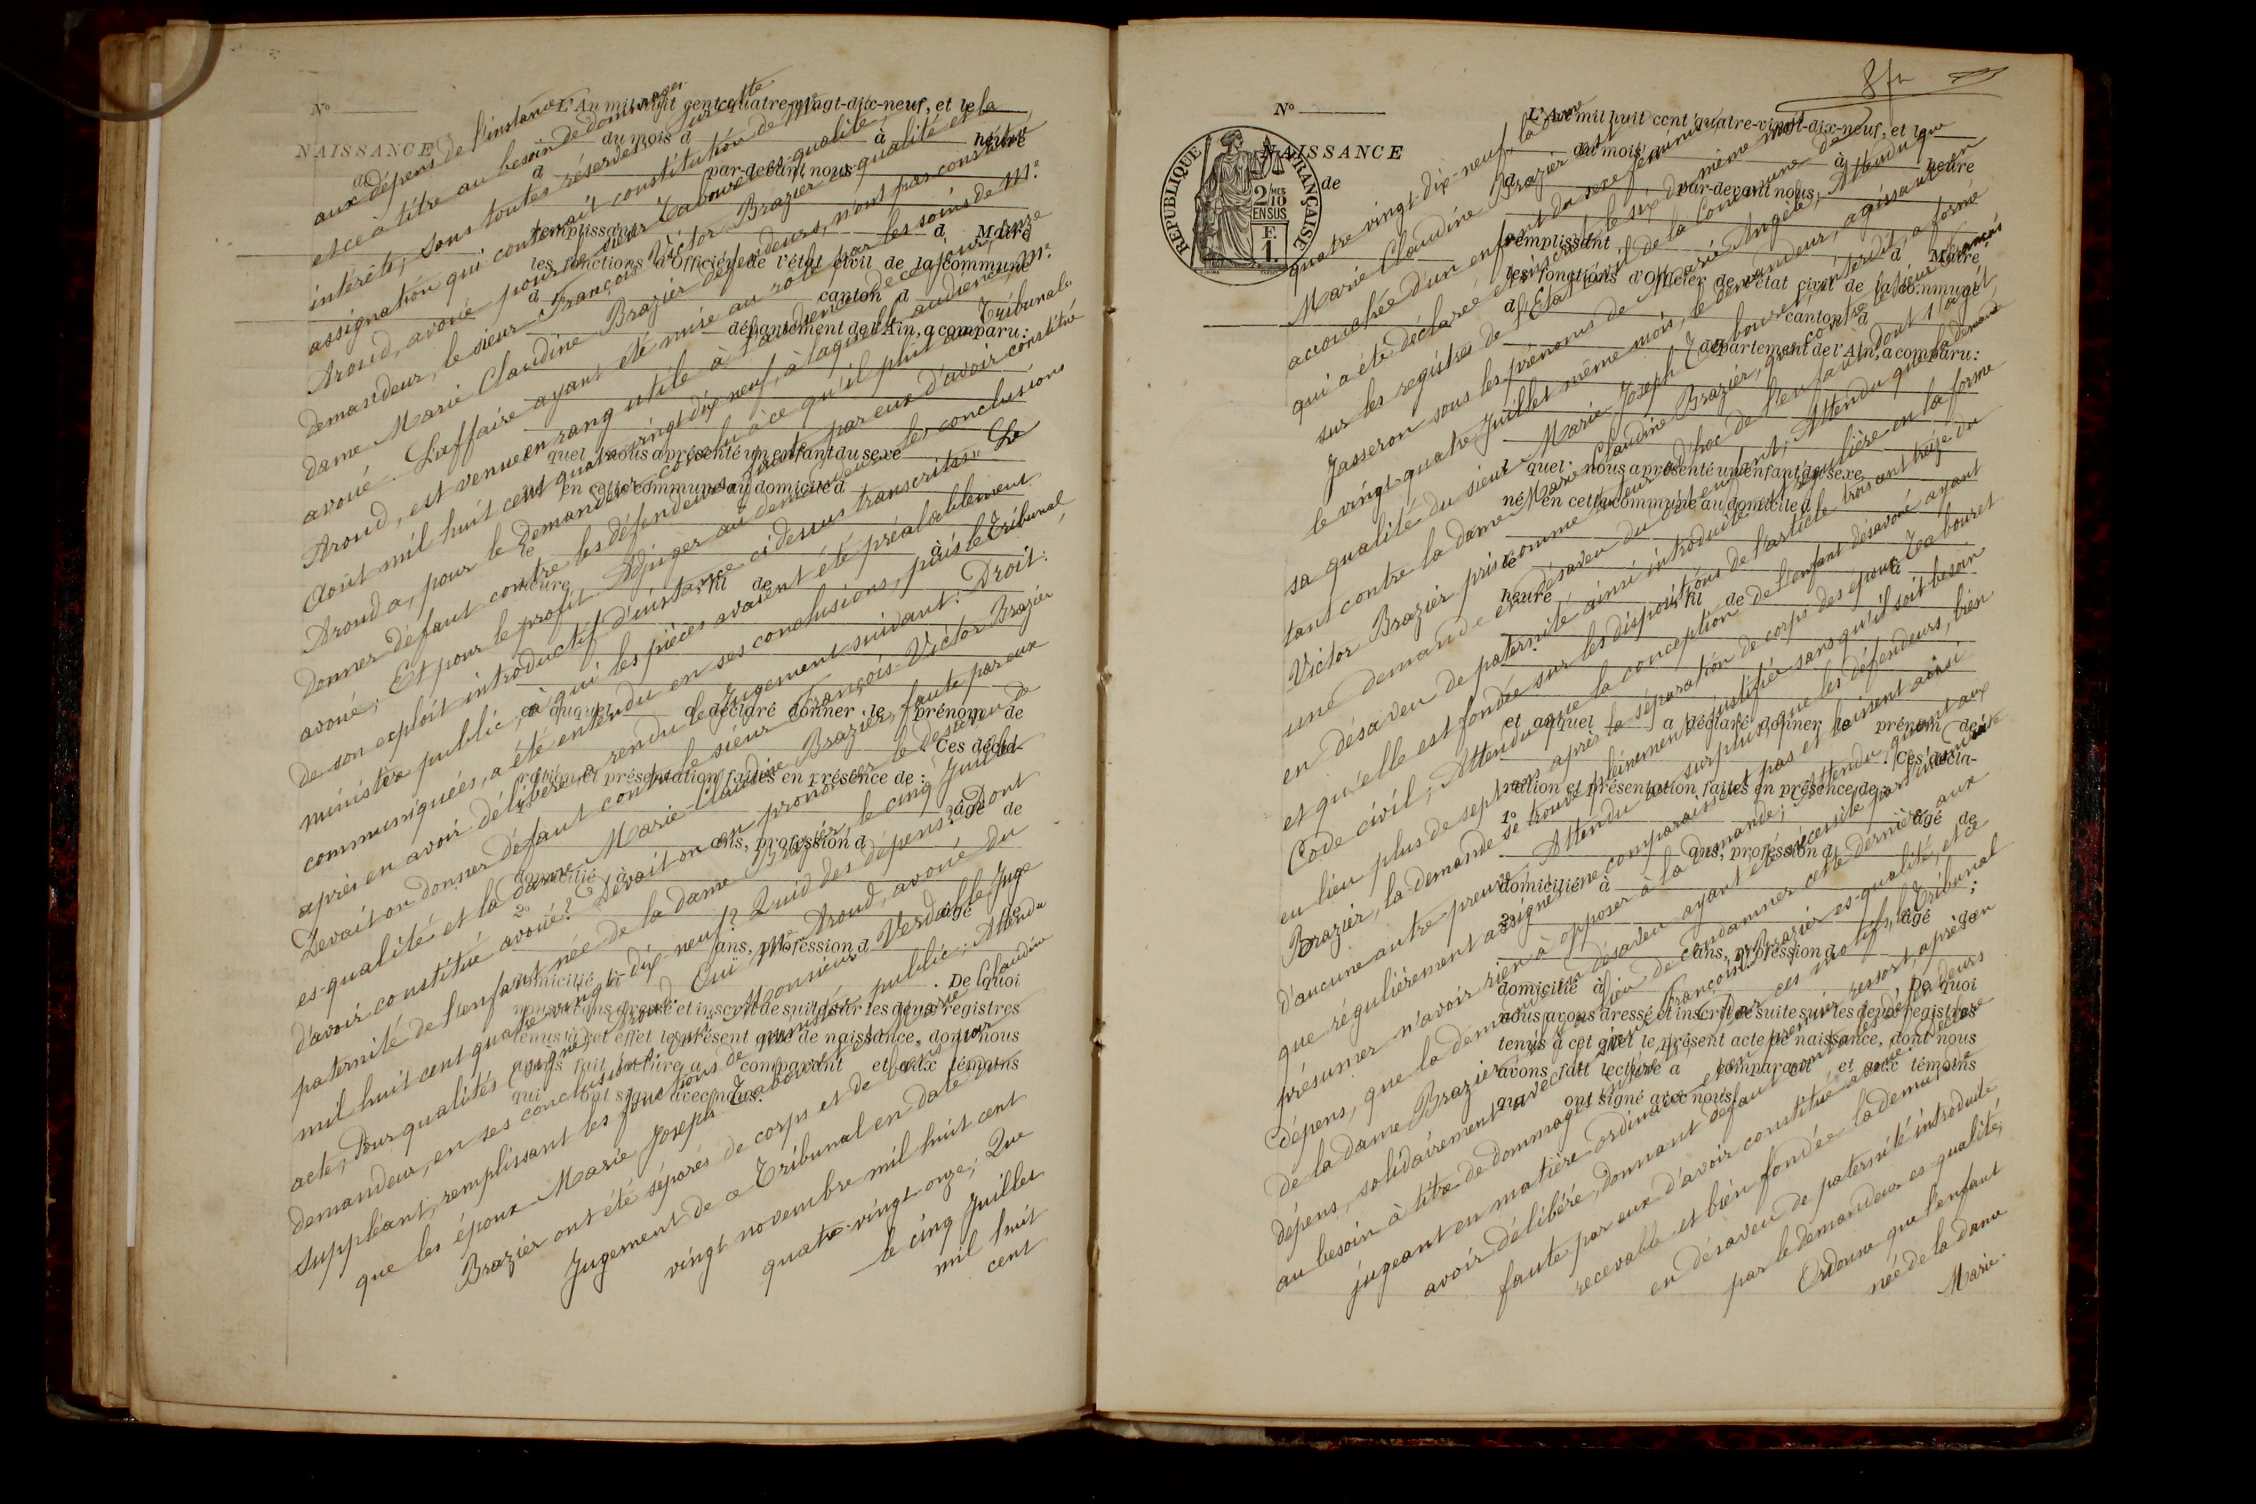 aux dépens de l'instance
et ce à titre au besoin de dommages
intérêts, sous toutes réserves. Sur cette
assignation qui contenait constitution de Me
Aroud, avoué pour le sieur Tabouret es-qualité,
demandeur, le sieur François Victor Brazier es-qualité et la
dame Marie Claudine Brazier défendeurs, n'ont pas constitué
avoué. L'affaire ayant été mise au rôle par les soins de Me
Aroud, est venue en rang utile à l'audience de ce jour, onze
Août mil huit cent quatre vingt dix neuf, à laquelle audience, Me
Aroud a, pour le demandeur, conclu à ce qu'il plut au Tribunal:
donner défaut contre les défendeurs faute par eux d'avoir constitué
avoué; Et pour le profit Adjuger au demandeur les conclusions
de son exploit introductif d'instance ci dessus transcrites. Le
ministère public, à qui les pièces avaient été préalablement
communiquées, a été entendu en ses conclusions, puis le Tribunal,
après en avoir délibéré, a rendu le Jugement suivant: Droit:
Devait-on donner défaut contre le sieur François-Victor Brazier
es-qualité et la dame Marie-Claudine Brazier, faute par eux
d'avoir constitué avoué? Devait on prononcer le désaveu de
paternité de l'enfant née de la dame Brazier le cinq Juillet
mil huit cent quatre vingt-dix-neuf? Quid des dépens? Dont
acte, Pour qualités signé Aroud. Ouï Me Aroud, avoué du
demandeur, en ses conclusions; ouï Monsieur Verdalle, Juge
suppléant, remplissant les fonctions de ministère public; Attendu
que les époux Marie Joseph Tabouret et Marie Claudine
Brazier ont été séparés de corps et de biens par
Jugement de ce Tribunal en date du
vingt novembre mil huit cent
quatre-vingt-onze; Que
le cinq Juillet
mil huit
cent
No
NAISSANCE
d
L'An mil huit cent quatre-vingt-dix-neuf, et le
du mois d à heure
d par-devant nous
remplissant d Maire
les fonctions d'Officier de l'état civil de la commune
d canton d
département de l'Ain, a comparu:
quel nous a présenté un enfant du sexe
né en cette commune au domicile d
le à
heure , fil de
et auquel a déclaré donner le prénom de
. Ces décla-
ration et présentation faites en présence de :
1o âgé de
ans, profession d
domicilié à ;
2o âgé de
ans, profession d
domicilié à . De quoi
nous avons dressé et inscrit de suite sur les deux registres
tenus à cet effet le présent acte de naissance, dont nous
avons fait lecture a comparant et aux témoins
qui ont signé avec nous.
8 fr
quatre vingt-dix-neuf, la dame
Marie Claudine Brazier est
accouchée d'un enfant du sexe féminin
qui a été déclarée et inscrite le six du même mois
sur les registres de l'Etat civil de la Commune de
Jasseron sous les prénoms de Marie Angèle; Attendu que
le vingt quatre Juillet même mois, le demandeur, agissant en
sa qualité du sieur Marie Joseph Tabouret, interdit, a formé
tant contre la dame Marie Claudine Brazier, que contre le sieur François
Victor Brazier pris comme tuteur ad'hoc de l'enfant dont s'agit,
une demande en désaveu du dit enfant; Attendu que la demande
en désaveu de paternité ainsi introduite est régulière en la forme
et qu'elle est fondée sur les dispositions de l'article trois cent treize du
Code civil; Attendu que la conception de l'enfant désavoué ayant
eu lieu plus de sept ans après la séparation de corps des époux Tabouret
Brazier, la demande se trouve pleinement justifiée sans qu'il soit besoin
d'aucune autre preuve; Attendu au surplus que les défendeurs, bien
que régulièrement assignés ne comparaissent pas et laissent ainsi
présumer n'avoir rien à opposer à la demande; Attendu, quant aux
dépens, que la demande en désaveu ayant été nécessitée par
de la dame Brazier, il y a lieu de condamner cette dernière aux
dépens, solidairement avec le sieur François Brazier es-qualité, et ce
au besoin à titre de dommages intérêts; Par ces motifs, le Tribunal
jugeant en matière ordinaire et en premier ressort, après en
avoir délibéré, donnant défaut contre les défendeurs
faute par eux d'avoir constitué avoué, déclare
recevable et bien fondée la demande
en désaveu de paternité introduite
par le demandeur es-qualité;
Ordonne que l'enfant
née de la dame
Marie-
No
NAISSANCE
de
REPUBLIQUE FRANÇAISE
2/10 EN SUS
F. 1.
L'An mil huit cent quatre-vingt-dix-neuf, et le
du mois d à heure
d par-devant nous
remplissant d Maire
les fonctions d'Officier de l'état civil de la commune
d canton d
département de l'Ain, a comparu:
quel nous a présenté un enfant du sexe
né en cette commune au domicile d
le à
heure , fil de
et auquel a déclaré donner le prénom de
. Ces décla-
ration et présentation faites en présence de :
1o âgé de
ans, profession d
domicilié à ;
2o âgé de
ans, profession d
domicilié à . De quoi
nous avons dressé et inscrit de suite sur les deux registres
tenus à cet effet le présent acte de naissance, dont nous
avons fait lecture a comparant et aux témoins
qui ont signé avec nous.